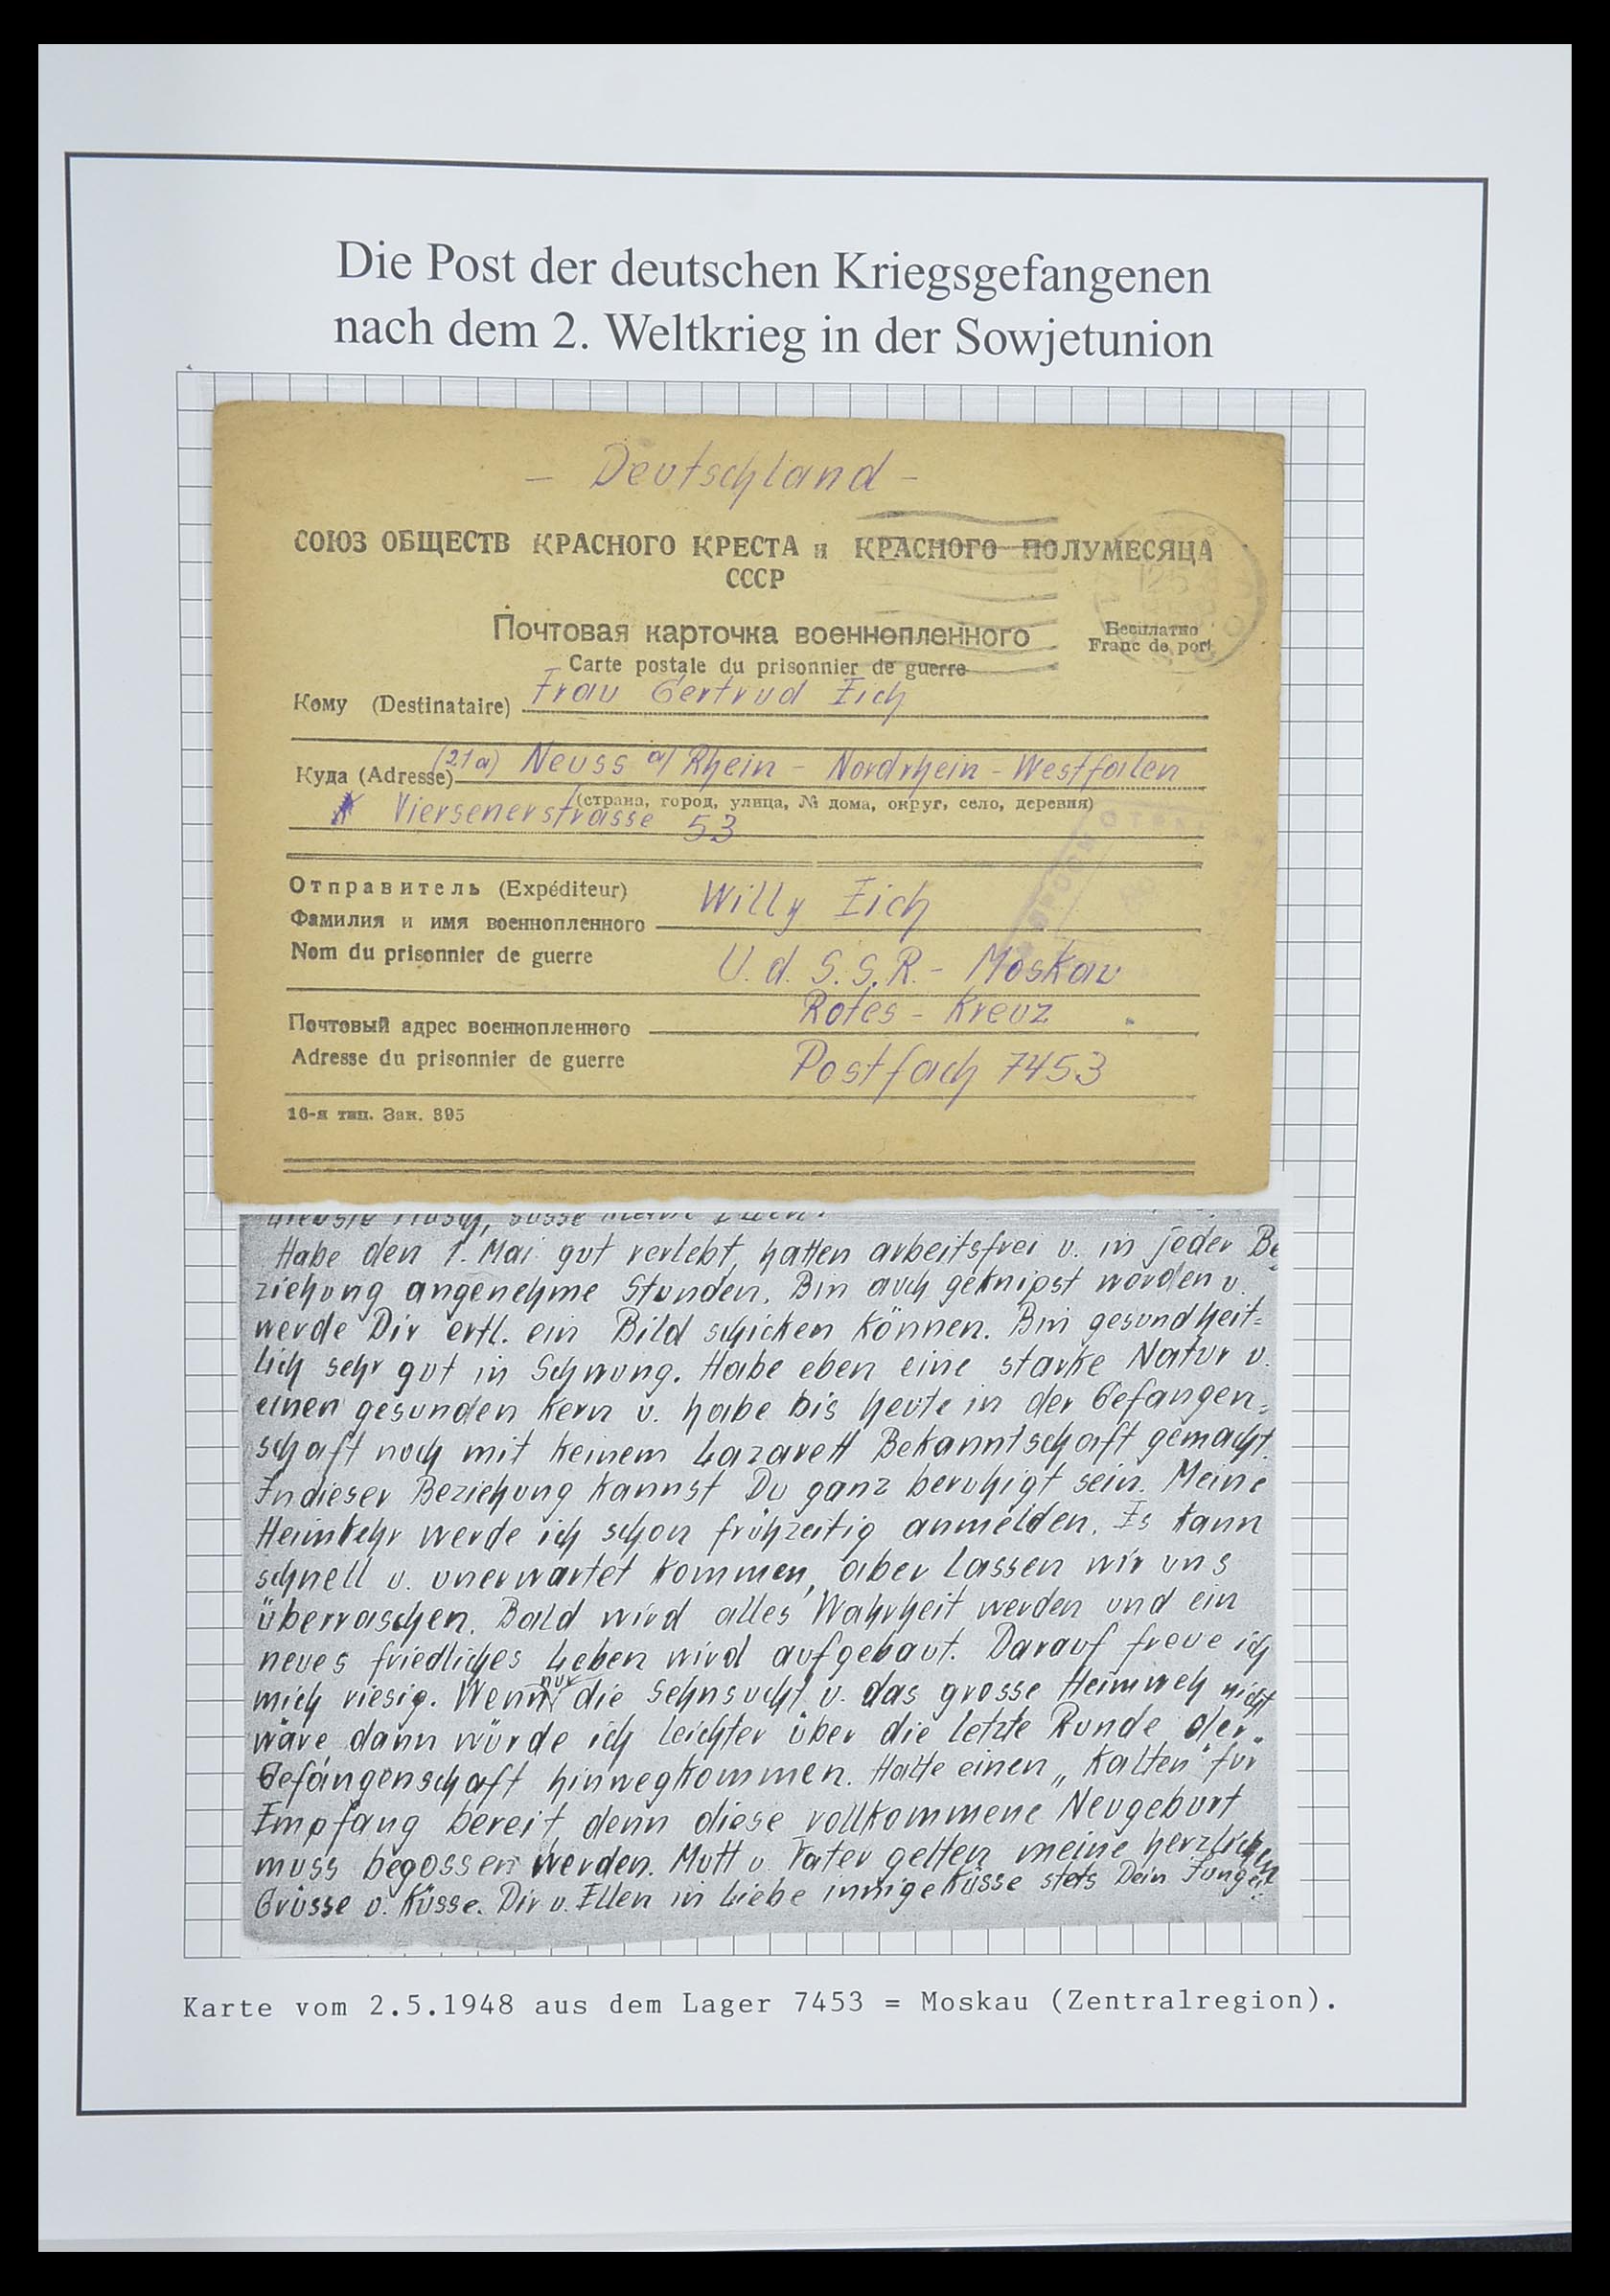 Die Post der deutschen Kriegsgefangenen
nach dem 2. Weltkrieg in der Sowjetunion
– Deutschland –
СОЮЗ ОБЩЕСТВ КРАСНОГО КРЕСТА и КРАСНОГО ПОЛУМЕСЯЦА
СССР
Почтовая карточка военнопленного
Бесплатно
Franc de port
Carte postale du prisonnier de guerre
Кому (Destinataire) Frau Gertrud Eich
Куда (Adresse) (21a) Neuss a/Rhein - Nordrhein - Westfalen
(страна, город, улица, № дома, округ, село, деревня)
Viersenerstrasse 53
Отправитель (Expéditeur)
Фамилия и имя военнопленного Willy Eich
Nom du prisonnier de guerre
U.d.S.S.R. - Moskau
Rotes - Kreuz
Почтовый адрес военнопленного
Adresse du prisonnier de guerre
Postfach 7453
16-я тип. Зак. 395
Habe den 1. Mai gut verlebt, hatten arbeitsfrei u. in jeder Be
ziehung angenehme Stunden. Bin auch geknipst worden u.
werde Dir evtl. ein Bild schicken können. Bin gesundheit=
lich sehr gut in Schwung. Habe eben eine starke Natur u.
einen gesunden Kern u. habe bis heute in der Gefangen=
schaft noch mit keinem Lazarett Bekanntschaft gemacht.
In dieser Beziehung kannst Du ganz beruhigt sein. Meine
Heimkehr werde ich schon frühzeitig anmelden. Es kann
schnell u. unerwartet kommen, aber lassen wir uns
überraschen. Bald wird alles Wahrheit werden und ein
neues friedliches Leben wird aufgebaut. Darauf freue ich
mich riesig. Wenn nur die Sehnsucht u. das grosse Heimweh nicht
wäre dann würde ich leichter über die letzte Runde der
Gefangenschaft hinwegkommen. Halte einen „Kalten" für
Empfang bereit, denn diese vollkommene Neugeburt
muss begossen werden. Mutt u. Vater gelten meine herzlichen
Grüsse u. Küsse. Dir u. Ellen in Liebe innige Küsse stets Dein Junge
Karte vom 2.5.1948 aus dem Lager 7453 = Moskau (Zentralregion).